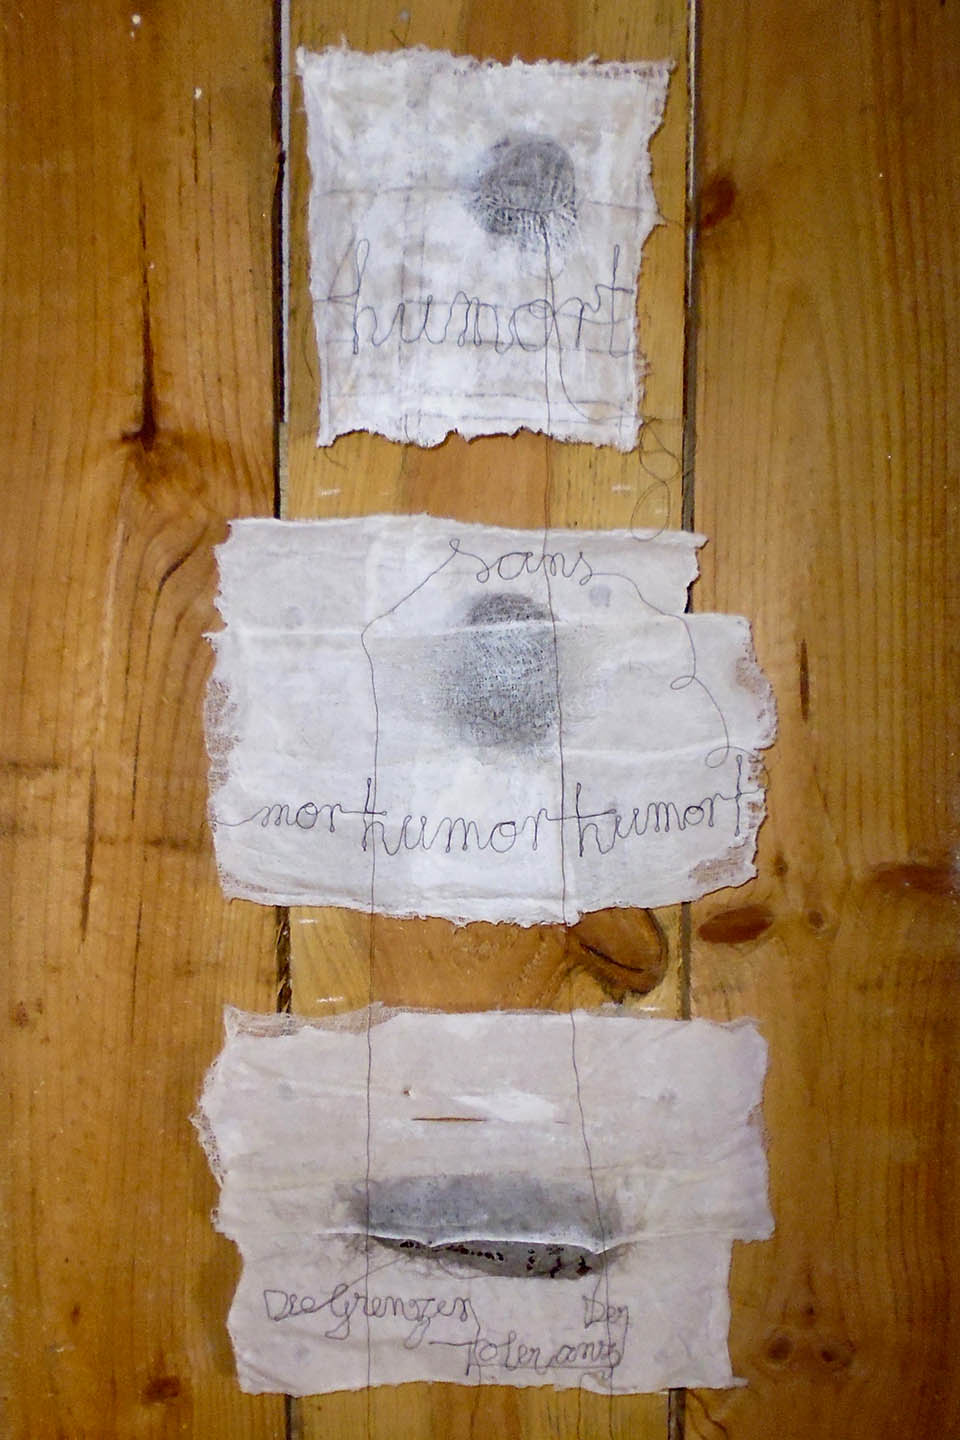 humort
sans
morthumorthumort
Die Grenzen Der
Toleranz